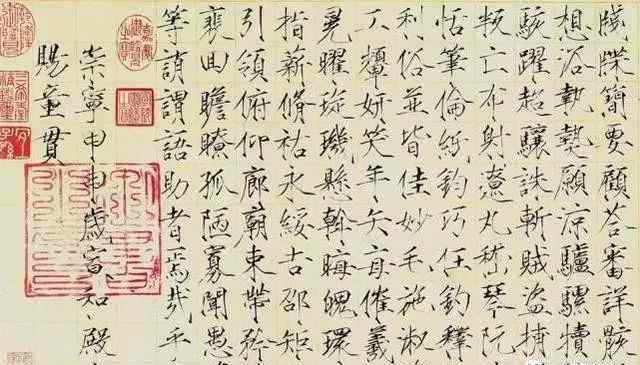 牋牒簡要顧答審詳骸
想浴執熱願涼驢騾犢
駭躍超驤誅斬賊盜捕
叛亡布射遼丸嵇琴阮
恬筆倫紙鈞巧任釣釋
利俗並皆佳妙毛施淑
工顰妍笑年矢每催羲
晃曜琁璣懸斡晦魄環
指薪脩祜永綏吉邵矩
引領俯仰廊廟束帶矜
裵回瞻眺孤陋寡聞愚
等誚謂語助者焉哉乎
崇寧甲申歲宣和殿
賜童貫